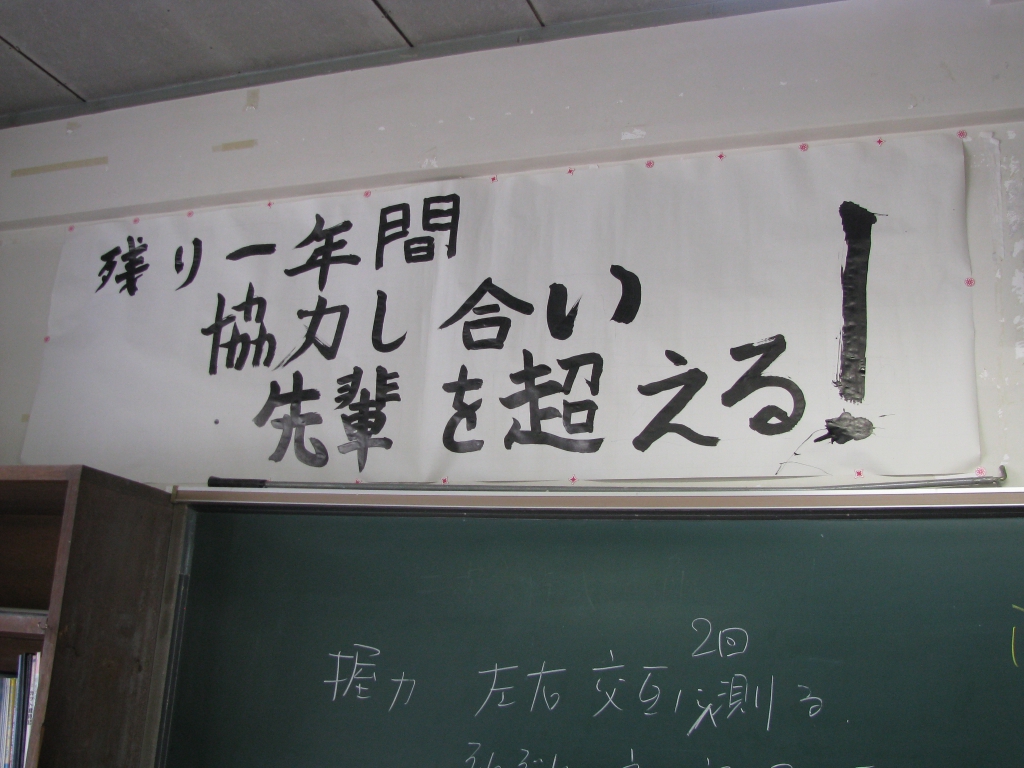 残り一年間
協力し合い
先輩を超える!
2回
握力 左右交互に測る.